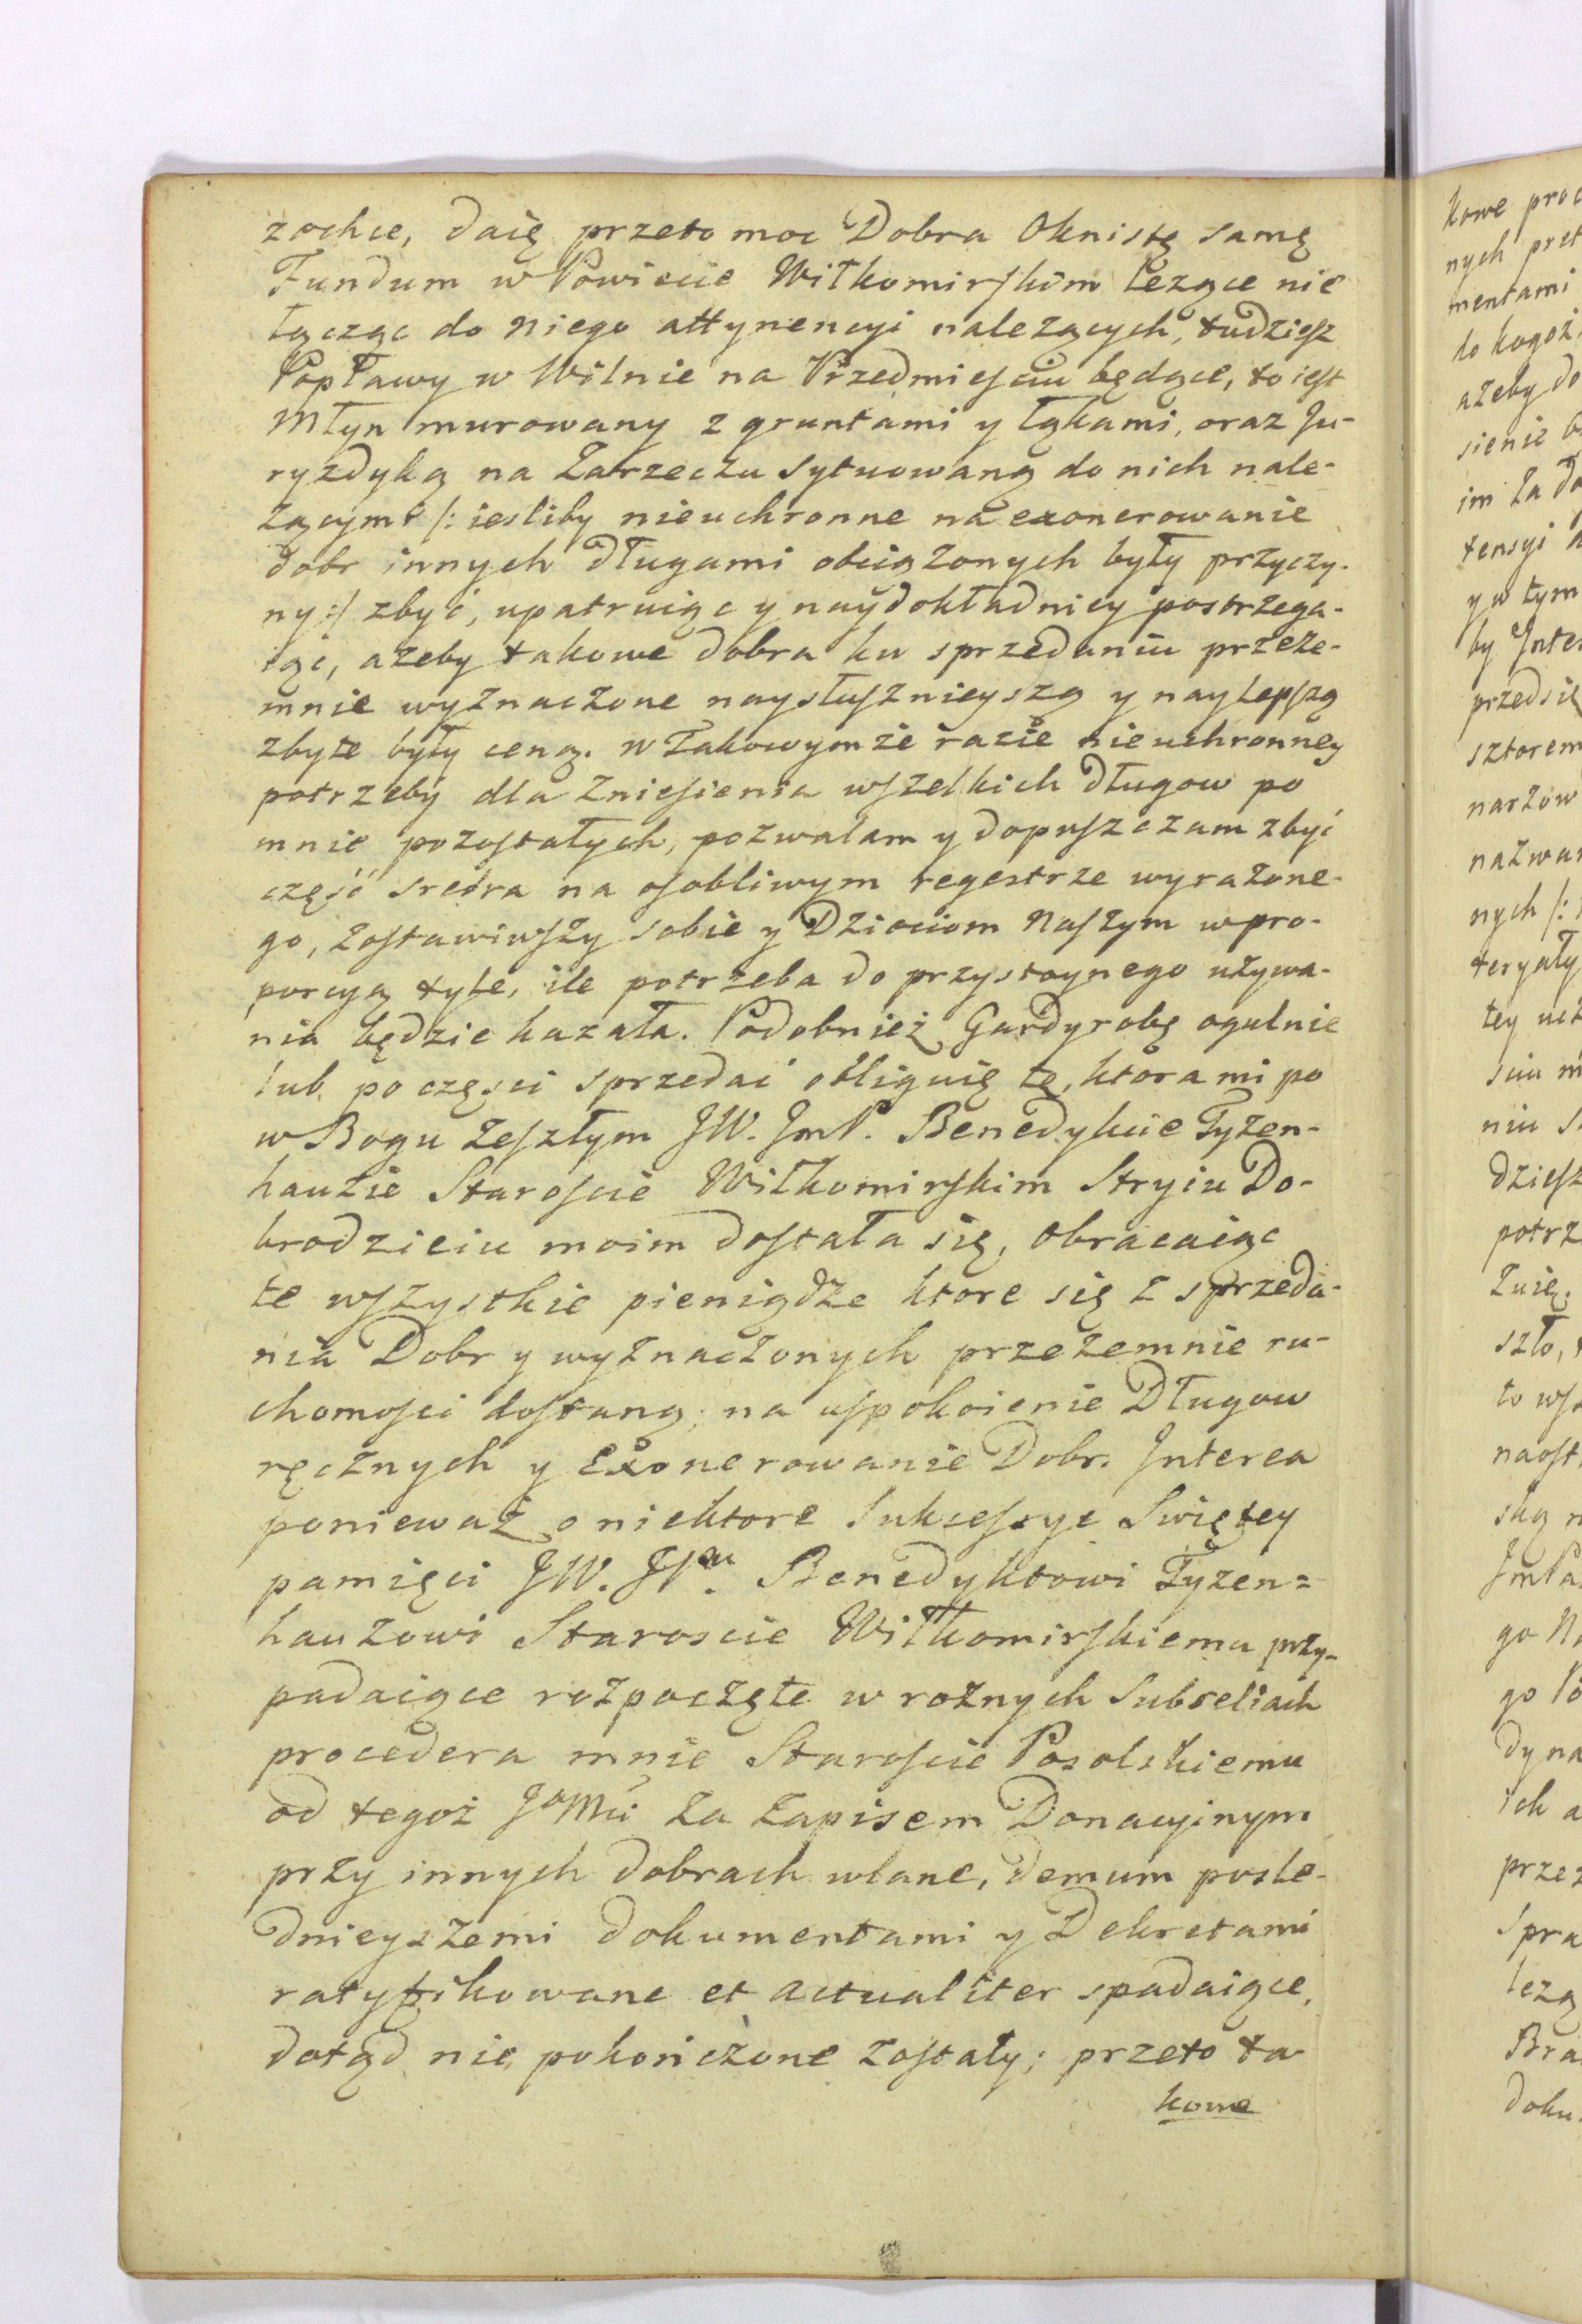 zechce, daię przeto moc Dobra Oknistę samę
Fundum w Powiecie Wiłkomirskim leżące nie
łącząc do niego attynencyi należących, tudziesz
Popławy w Wilnie na Przedmiesciu będące, to iest
Młyn murowany z gruntami y łąkami, oraz Ju-
ryzdyką na Zarzeczu sytuowaną do nich nale-
żącymi /: iesliby nieuchronne na exonerowanie
dobr innych długami obciążonych były przyczy-
ny :/ zbyć, upatruiąc y naydokładniey postrzega-
iąc, ażeby takowe dobra ku sprzedaniu przeze-
mnie wyznaczone naysłusznieyszą y naylepszą
zbyte były ceną. w Takowymże razie nieuchronney
potrzeby dla zniesienia wszelkich długow po
mnie pozostałych, pozwalam y dopuszczam zbyć
część srebra na osobliwym regestrze wyrażone-
go, zostawiwszy sobie y Dzieciom Naszym w pro-
porcyą tyle, ile potrzeba do przystoynego używa-
nia będzie kazała. Podobnież Gardyrobę ogulnie
lub po części sprzedać obliguię tę, ktora mi po
w Bogu zeszłym JW. JmP. Benedykcie Tyzen-
hauzie Staroscie Wiłkomirskim Stryiu Do-
brodzieiu moim dostała się, obracaiąc
te wszystkie pieniądze ktore się z sprzeda-
nia Dobr y wyznaczonych przezemnie ru-
chomosci dostaną, na uspokoienie Długow
ręcznych y Exonerowanie Dobr. Interea
ponieważ o niektore Sukcessye Swiętey
pamięci JW. JPu. Benedyktowi Tyzen=
hauzowi Staroscie Wiłkomirskiemu przy-
padaiące rozpoczęte w rożnych Subseliach
procedera mnie Staroscie Posolskiemu
od tegoż JoMći za Zapisem Donacyinym
przy innych dobrach wlane, demum posle-
dnieyszemi dokumentami y Dekretami
ratyfikowane et actualiter spadaiące,
dotąd nie pokończone zostały; przeto ta
kowe
kowe
nych
mentami
do kogoż
ażeby do
sienie
im za
tensyi
y w tym
by
przedsię
sztorem
narzow
nych /:
teryały
tey
niu
dziesz
potrz
żuię.
szło,
to
go
go
dy na
ich
przez
Spra
leżą
Bra
doku